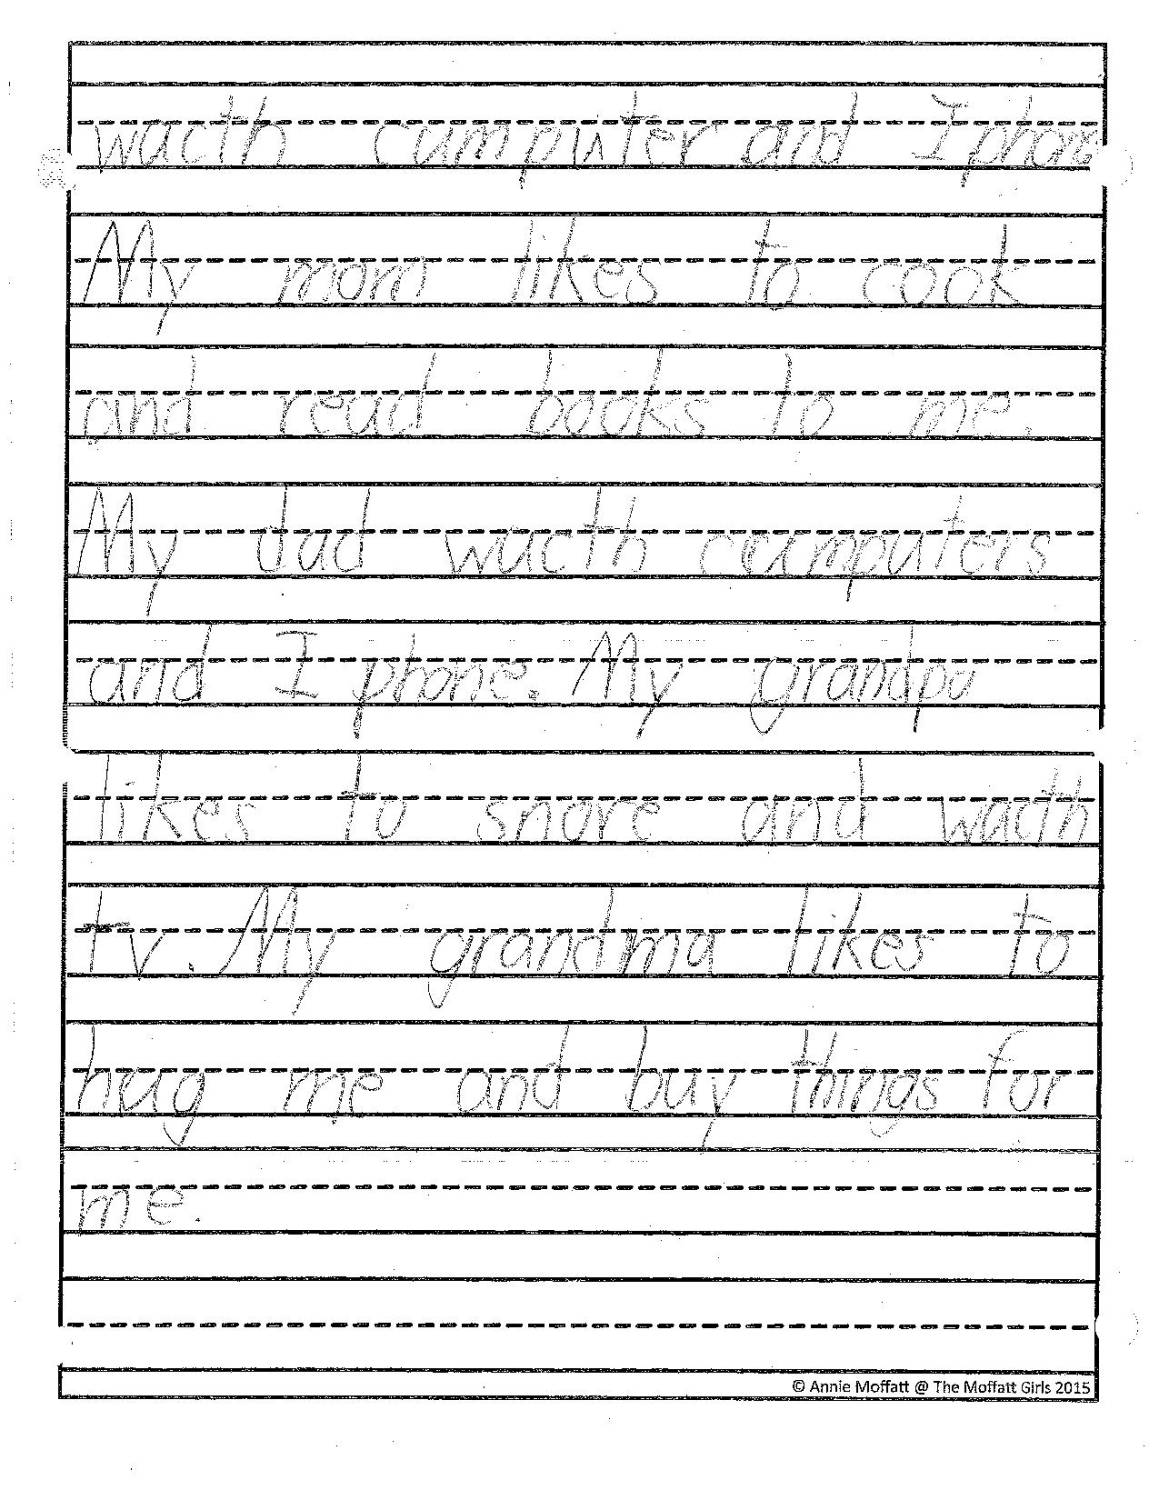 wacth cumputer and I phone
My mom likes to cook
and read books to me.
My dad wacth cumputers
and I phone. My grandpa
likes to snore and wacth
tv. My grandma likes to
hug me and buy things for
me.
© Annie Moffatt @ The Moffatt Girls 2015